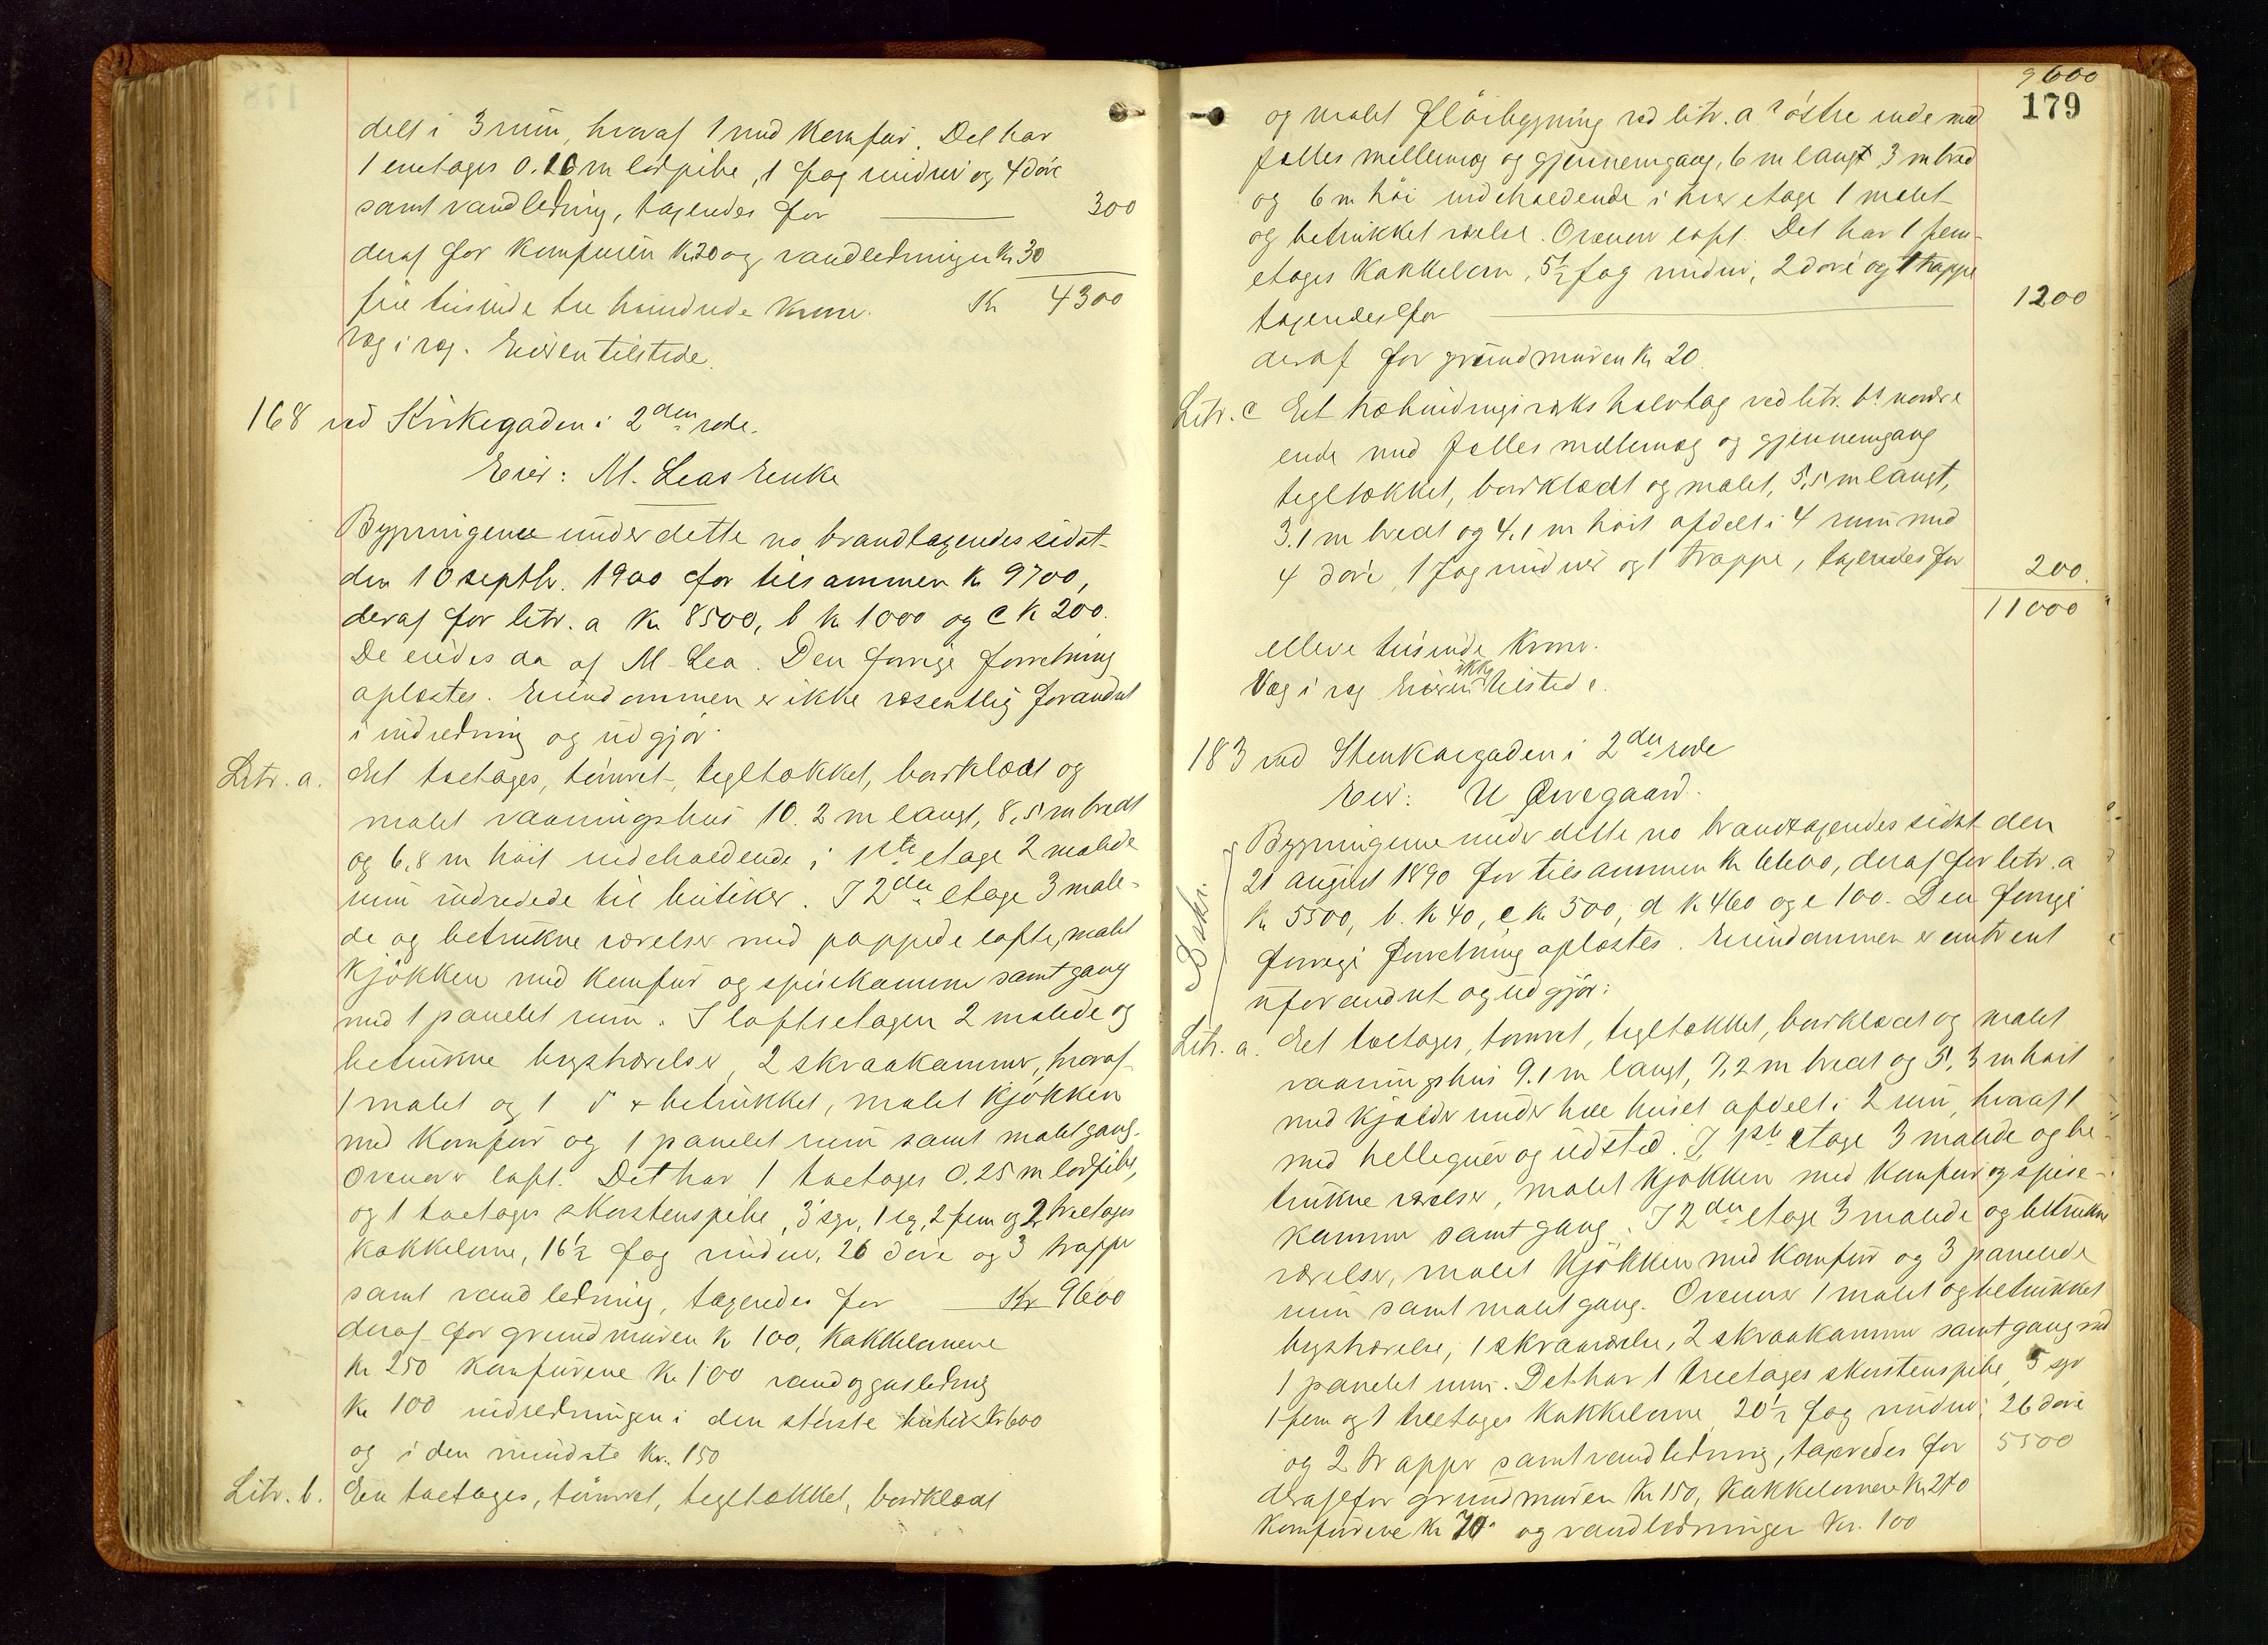 delt i 3 rum, hvoraf 1 med komfur. Det har
1 enetages 0.16 m lodpibe, 1 fag vinduer og 4 döre
samt vandledning, taxeredes for 300
deraf for komfuren K 20 og vandledningen Kr 30
fire tusinde tre hundrede kroner. Kr 4300
Væg i væg. Eieren tilstede.
168 ved Kirkegaden i 2den rode.
Eier: M. Leas Enke
Bygningerne under dette no brandtaxeredes sidst
den 10 septbr. 1900 for tilsammen K 9700,
deraf for litr. a Kr 8500, b Kr 1000 og c K 200.
De eiedes da af M. Lea. Den forrige forretning
oplæstes. Eiendommen er ikke væsentlig forandret
i indredning og udgjör:
Litr. a. Et toetages, tömret, tegltækket, bordklædt og
malet vaaningshus 10.2 m langt, 8,5 m bredt
og 6,8 m höit indeholdende i 1ste etage 2 malede
rum indredede til butiker. I 2den etage 3 male-
de og betrukne værelser med pappede lofte, malet
kjökken med komfur og spisekammer samt gang
med 1 panelet rum. I loftsetagen 2 malede og
betrukne kvistværelser, 2 skraakammer, hvoraf
1 malet og 1 betrukket, malet kjökken
med komfur og 1 panelet rum samt malet gang.
Ovenover loft. Det har 1 toetages 0,25 m lodpibe,
og 1 toetages skorstenspibe, 3 sgr, 1 eg, 2 fem og 2 treetages
kakkelovne, 16 1/2 fag vinduer, 26 döre og 3 trapper
samt vandledning, taxeredes for Kr 9600
deraf for grundmuren K 100, kakkelovnene
Kr 250 komfurene Kr 100 vand og gasledning
Kr 100 indredningen i den störste butik Kr 600
og i den mindste Kr. 150
Litr. b. En toetages, tömret, tegltækket, bordklædt
9600
179
og malet flöibygning ved litr. a's östre ende med
fælles mellemvæg og gjennemgang, 6 m langt 3 m bred
og 6 m höi indeholdende i hver etage 1 malet
og betrukket værelse. Ovenover loft. Det har 1 fem-
etages kakkelovn, 5 1/2 fag vinduer, 2 döre og 1 trappe
taxeredes for 1200
deraf for grundmuren Kr 20.
Litr. c Et træbindingsværks halvtag ved litr. b's nordre
ende med fælles mellemvæg og gjennemgang
tegltækket, bordklædt og malet, 5,5 m langt,
3.1 m bredt og 4.1 m höit afdelt i 4 rum med
4 döre, 1 fag vinduer og 1 trappe, taxeredes for 200.
11000
elleve tusinde kroner.
Væg i væg Eieren ikke tilstede.
183 ved Stenkargaden i 2den rode
Eier: U Qvegaard.
Bygningerne under dette no brandtaxeredes sidst den
21 august 1890 for tilsammen Kr 6600, deraf for litr. a
K 5500, b. K 40, c Kr 500, d K 460 og e 100. Den forrige
forrige forretning oplæstes. Eiendommen er omtrent
uforandret og udgjör:
Litr. a. Et toetages, tömret, tegltækket, bordklædt og malet
vaaningshus 9.1 m langt, 7,2 m bredt og 5,3 m höit
med kjælder under hele huset afdelt i 2 rum, hvoraf 1
med hellegulv og ildsted. I 1ste etage 3 malede og be-
trukne værelser, malet kjökken med komfur og spise-
kammer samt gang. I 2den etage 3 malede og betrukne
værelser, malet kjökken med komfur og 3 panelede
rum samt malet gang. Ovenover 1 malet og betrukket
kvistværelse, 1 skraaværelse, 2 skraakammer samt gang med
1 panelet rum. Det har 1 treetages skorstenspibe, 5 sgr
1 fem og 1 treetages kakkelovne 20 1/2 fag vinduer, 26 döre
og 2 trapper samt vandledning, taxeredes for 5500
deraf for grundmuren Kr 150, kakkelovnene Kr 240
komfurene Kr 70 og vandledningen Kr. 100